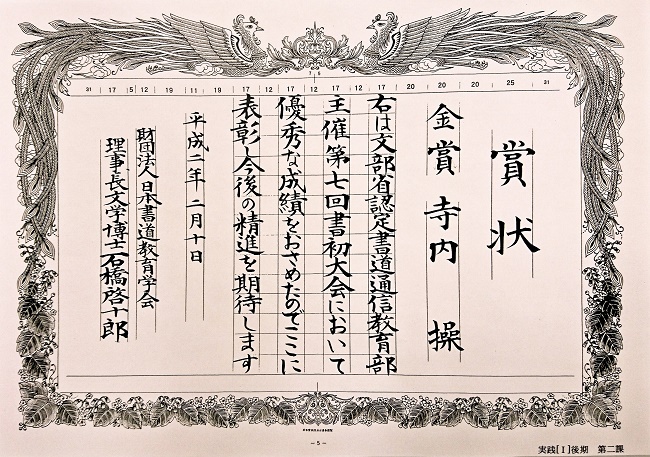 賞状
金賞 寺内 操
右は文部省認定書道通信教育部
主催第七回書初大会において
優秀な成績をおさめたのでここに
表彰し今後の精進を期待します
平成二年二月十日
財団法人日本書道教育学会
理事長文学博士石橋啓十郎
7 5
31 17 5 12 19 11 19 17 12 17 12 17 12 17 20 20 20 25 31
- 5 -
実践[I]後期 第二課